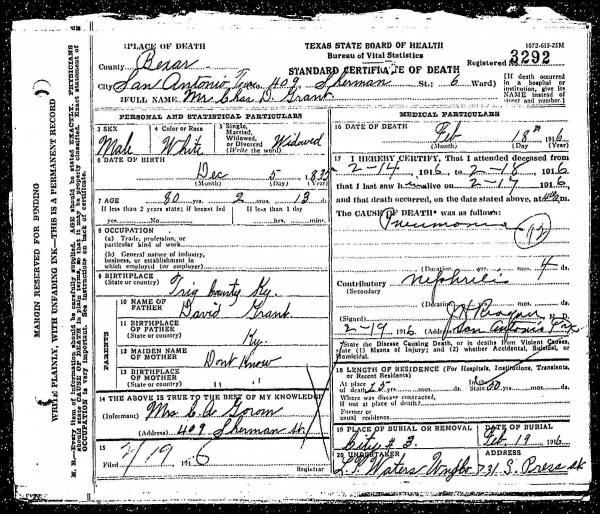 1072-615-25M
PLACE OF DEATH
TEXAS STATE BOARD OF HEALTH
Bureau of Vital Statistics
County Bexar
Registered 3292
STANDARD CERTIFICATE OF DEATH
City San Antonio Tex No. 409 Sherman St.; 6 Ward)
[If death occurred in a hospital or institution, give its NAME instead of street and number.]
2 FULL NAME Mr Chas D. Grant
PERSONAL AND STATISTICAL PARTICULARS
3 SEX Male
4 Color or Race White
5 Single, Married, Widowed or Divorced (Write the word) Widowed
6 DATE OF BIRTH
Dec 5 1835
(Month) (Day) (Year)
7 AGE 80 yrs. 2 mos. 13 ds.
If less than 2 years state; if breast fed
If less than 1 day
yes No hrs. mins.
8 OCCUPATION
(a) Trade, profession, or particular kind of work
(b) General nature of industry, business, or establishment in which employed (or employer)
9 BIRTHPLACE (State or country) Trig County Ky.
PARENTS
10 NAME OF FATHER David Grant
11 BIRTHPLACE OF FATHER (State or country) Ky.
12 MAIDEN NAME OF MOTHER Dont Know
13 BIRTHPLACE OF MOTHER (State or country) " "
14 THE ABOVE IS TRUE TO THE BEST OF MY KNOWLEDGE
(Informant) Mrs C. A.
(Address) 409 Sherman st
15
Filed 2/19 1916
Registrar
MEDICAL PARTICULARS
16 DATE OF DEATH
Feb 18th 1916
(Month) (Day) (Year)
17 I HEREBY CERTIFY, That I attended deceased from
2-14, 1916 to 2-18 1916
that I last saw him alive on 2-17 1916
and that death occurred, on the date stated above, at m.
The CAUSE OF DEATH* was as follows:
Pneumonia
(Duration) yrs. mos. 4 ds.
Contributory (Secondary) nephritis
(Duration) yrs. mos. ds.
(Signed) M. D.
2-19 1916 (Address) San Antonio Tex
*State the Disease Causing Death, or in deaths from Violent Causes, state (1) Means of Injury; and (2) whether Accidental, Suicidal, or Homicidal.
18 LENGTH OF RESIDENCE (For Hospitals, Institutions, Transients, or Recent Residents)
At place of death 25 yrs. mos. ds. In State 50 yrs. mos. ds.
Where was disease contracted, if not at place of death?
Former or usual residence
19 PLACE OF BURIAL OR REMOVAL City # 3.
DATE OF BURIAL Feb. 19 1916
20 UNDERTAKER
731 S. Presa st
MARGIN RESERVED FOR BINDING
WRITE PLAINLY, WITH UNFADING INK—THIS IS A PERMANENT RECORD
N. B.—Every item of information should be carefully supplied. AGE should be stated EXACTLY. PHYSICIANS should state CAUSE OF DEATH in plain terms, so that it may be properly classified. Exact statement of OCCUPATION is very important. See instructions on back of certificate.